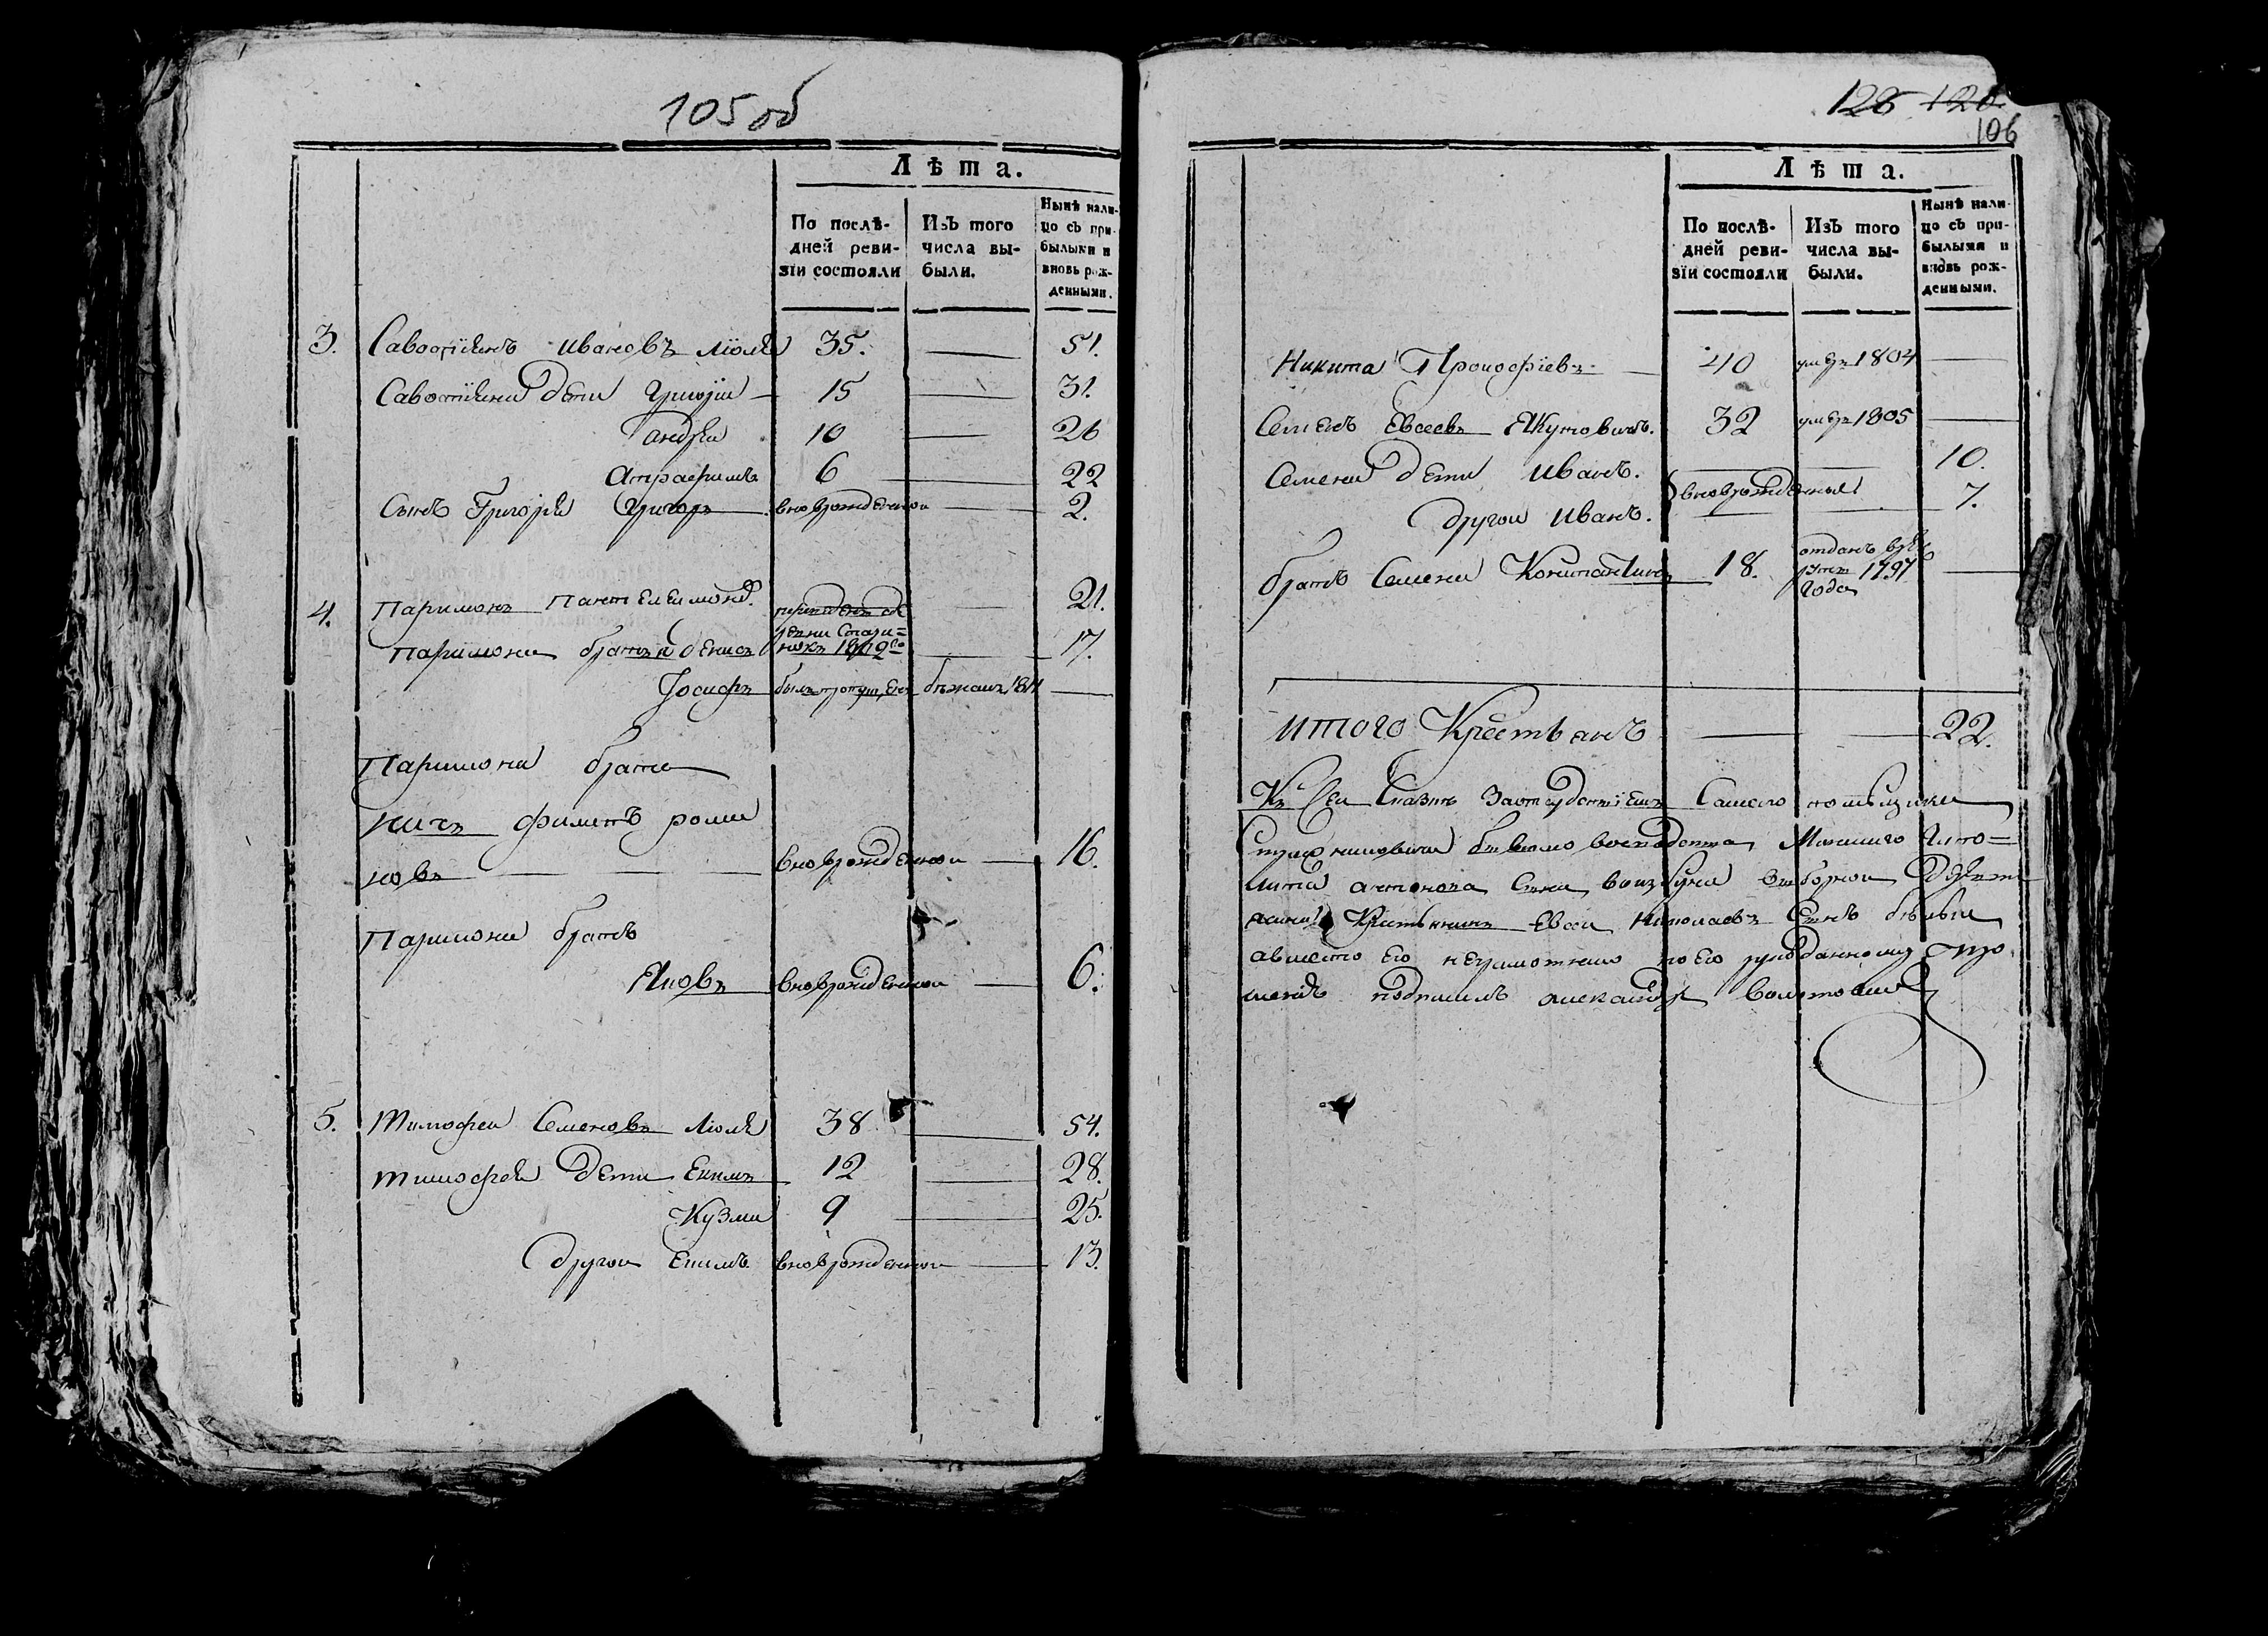 105 об
Лѣта.
По послѣ-
дней реви-
зїи состояли
Изъ того
числа вы-
были.
Нынѣ нали-
цо съ при-
былыми и
вновь рож-
денными.
3. Савостїянъ Ивановъ Люля 35. 51.
Савостїяна дети Григорiи 15 31.
Андрѣи 10 26
Атрафимъ 6 22
Сынъ Григорiя Григорь вновьрожденнои 2.
4. Паримонъ Пантелеимонъ 21.
Паримона братья Денисъ 17.
Iосифъ былъ пропущенъ бѣжалъ 1811
Паримона брата
Филипъ рома
новъ вновьрожденнои 16.
Паримона братъ
Яковъ вновьрожденнои 6.
5. Тимофеи Семеновъ Люля 38 54.
Тимофея дети Екимъ 12 28.
Кузма 9 25.
Другои Екимъ вновьрожденнои 13.
126 120.
106
Лѣта.
По послѣ-
дней реви-
зїи состояли
Изъ того
числа вы-
были.
Нынѣ нали-
цо съ при-
былыми и
вновь рож-
денными.
Никита Прокофїевъ 40 умеръ 1804
Семенъ Евсеевъ Якутовичъ. 32 умеръ 1805
Семена дети Иванъ. 10.
Другои Иванъ. вновьрожденныя 7.
братъ Семена Константинъ 18. отданъ врѣк
руты 1797
года
итого Крестьянъ 22.
Къ сеи сказкѣ Заотсудствїемъ Самого помѣщика
Антона Сына выборнои
Крестьянинъ Евсеи Николаевъ Сынъ
авместо его неграмотнаго по его рукоданному про
шенїю подписалъ александръ